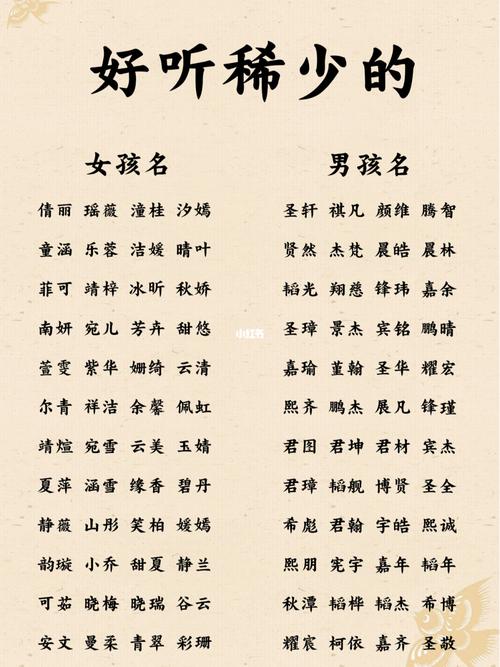 好听稀少的
女孩名
倩丽 瑶薇 潼桂 汐嫣
童涵 乐蓉 洁媛 晴叶
菲可 靖梓 冰昕 秋娇
南妍 宛儿 芳卉 甜悠
萱雯 紫华 姗绮 云清
尔青 祥洁 余馨 佩虹
靖煊 宛雪 云美 玉婧
夏萍 涵雪 缘香 碧丹
静薇 山彤 笑柏 媛嫣
韵璇 小乔 甜夏 静兰
可茹 晓梅 晓瑞 谷云
安文 曼柔 青翠 彩珊
男孩名
圣轩 祺凡 颜维 腾智
贤然 杰梵 晨皓 晨林
韬光 翔慈 锋玮 嘉余
圣璋 景杰 宾铭 鹏晴
嘉瑜 董翰 圣华 耀宏
熙齐 鹏杰 展凡 锋瑾
君图 君坤 君材 宾杰
君璋 韬舰 博贤 圣全
希彪 君翰 宇皓 熙诚
熙朋 宪宇 嘉年 韬年
秋潭 韬桦 韬杰 希博
耀宸 柯依 嘉齐 圣敬
小红书